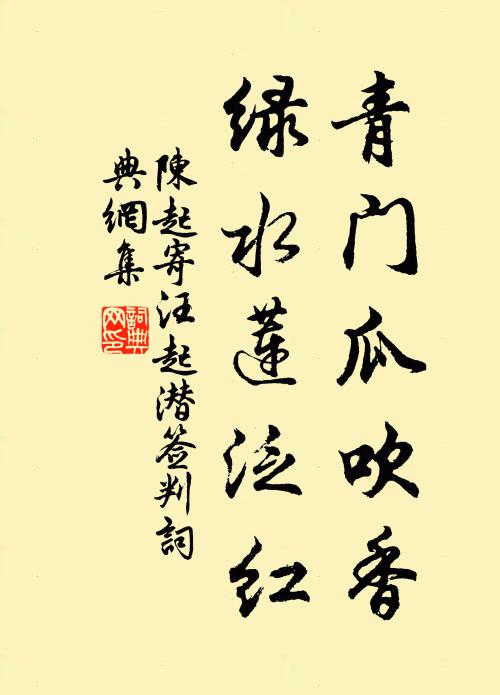 青门瓜吹香
绿水莲泛红
陳起寄汪起潜签判詞
典網集
詞典
网印